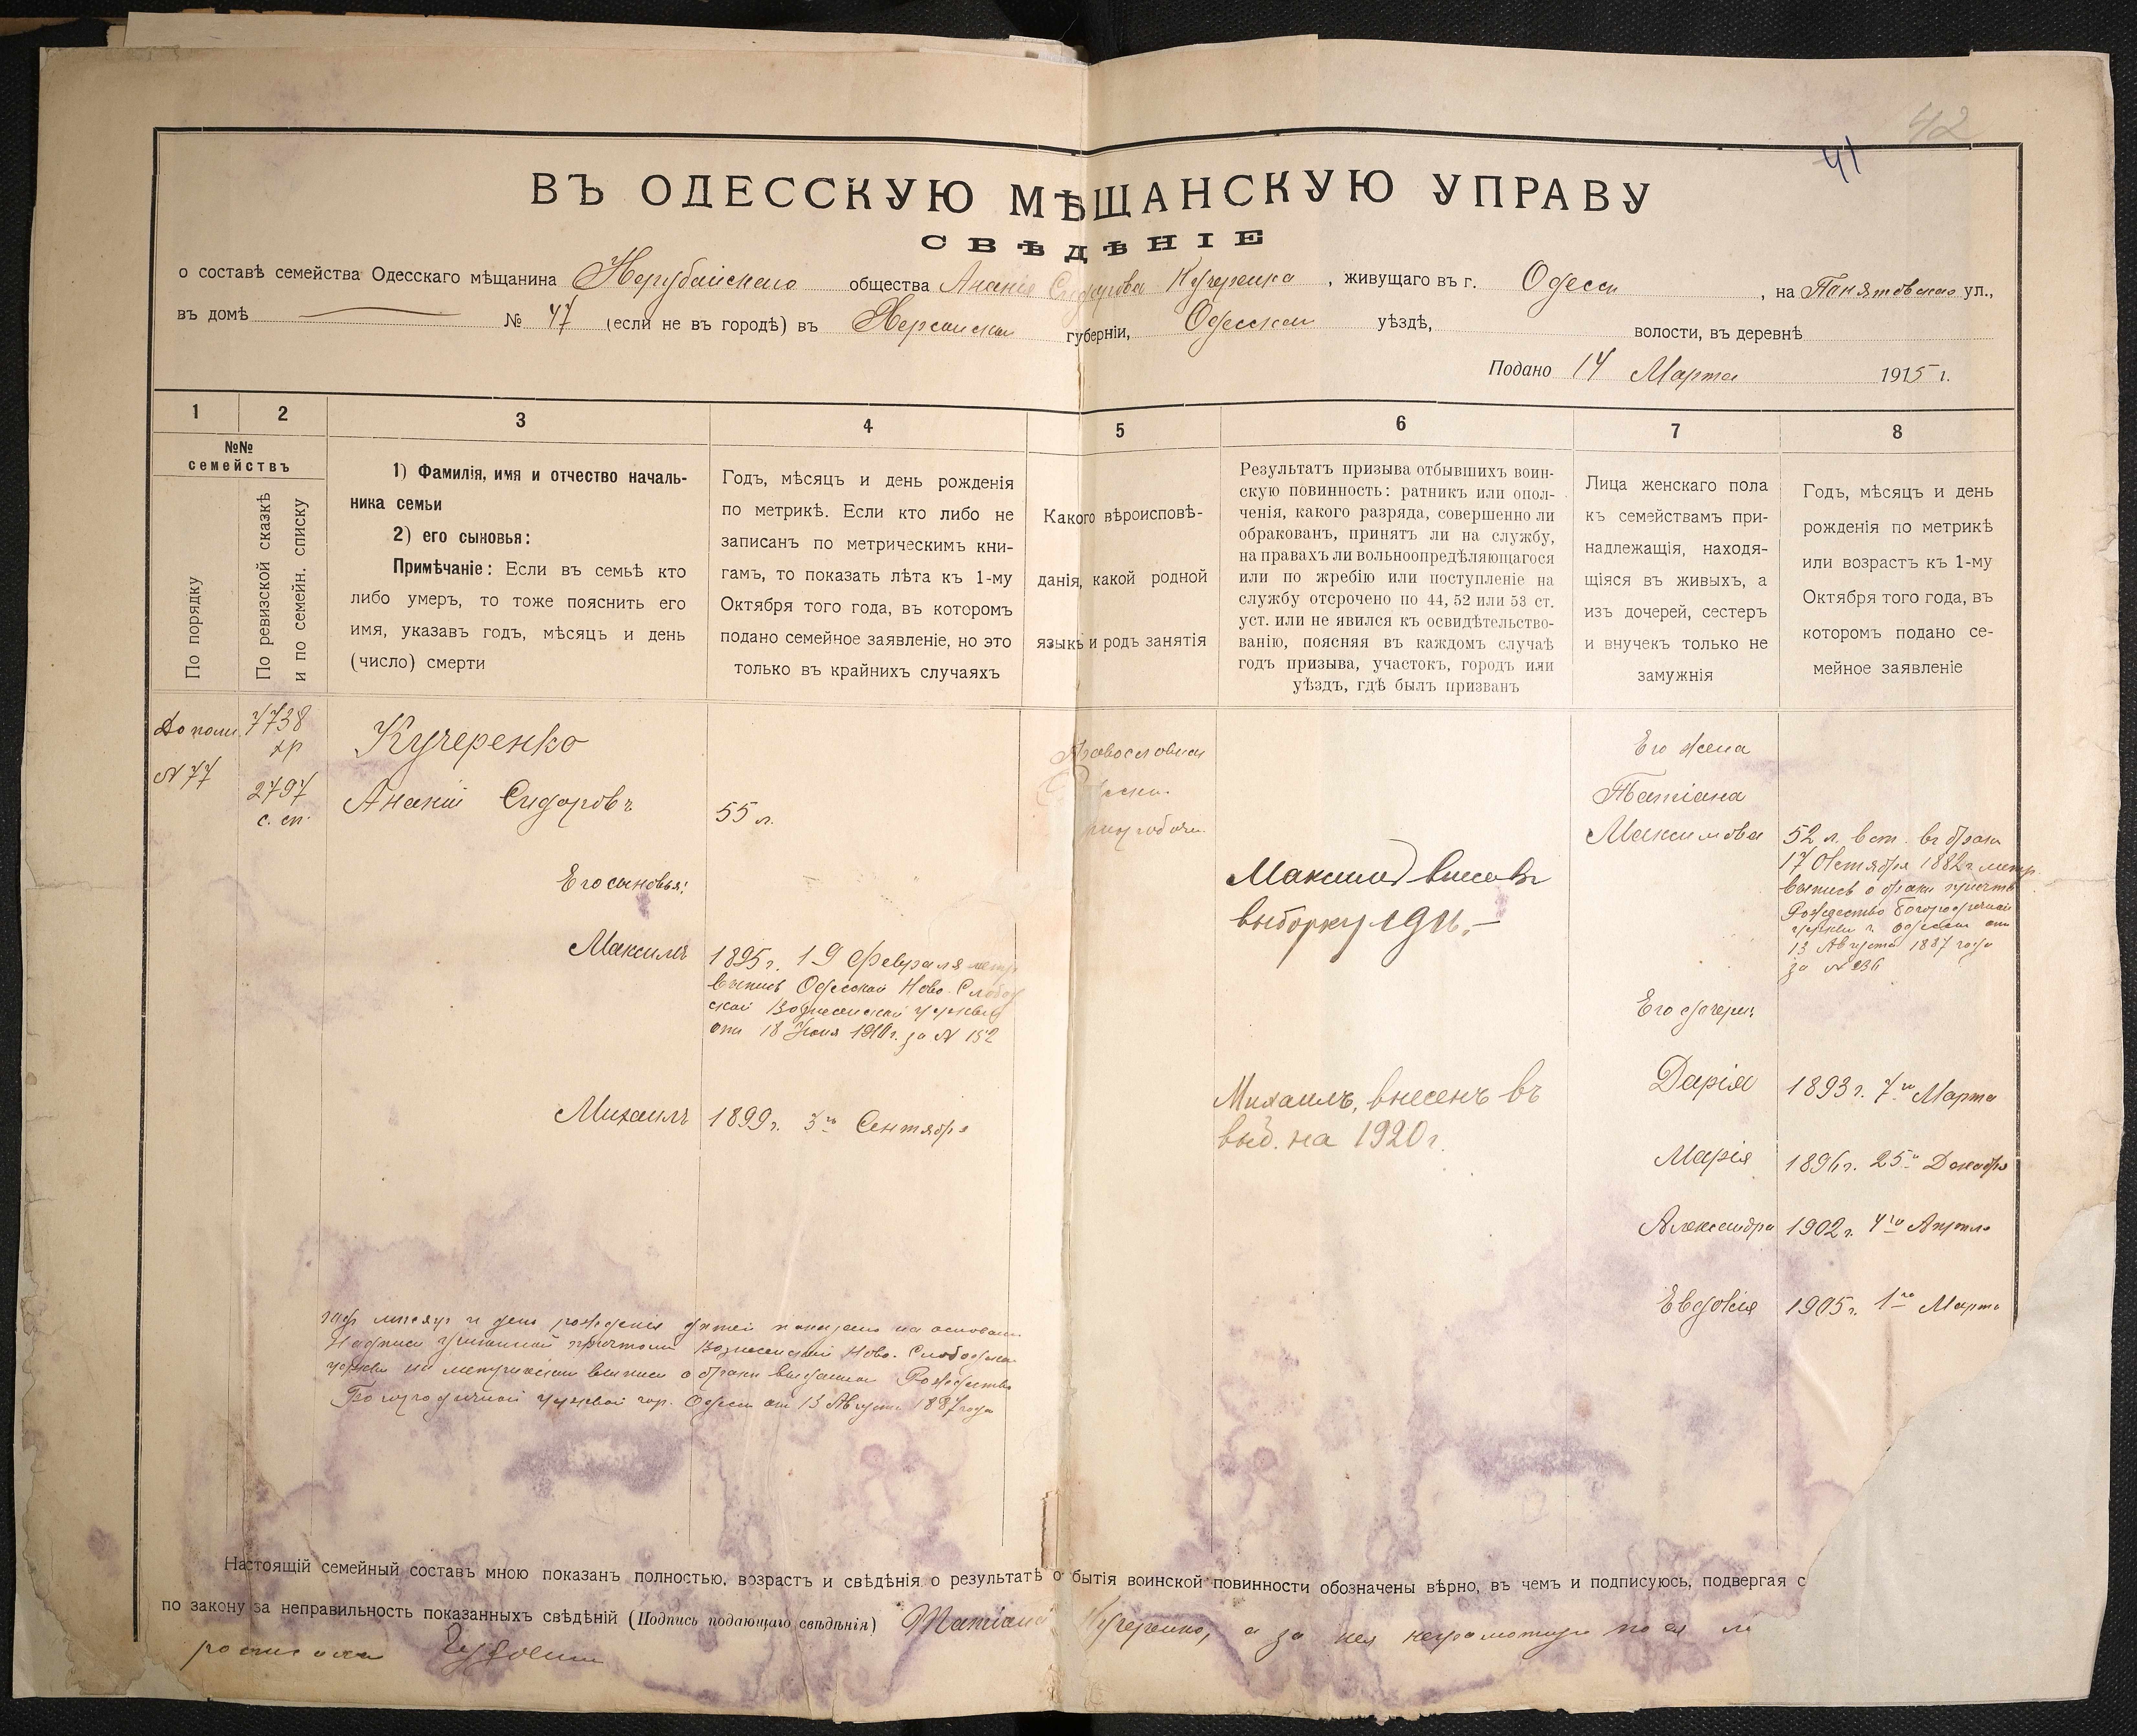 42
41
ВЪ ОДЕССКУЮ МѢЩАНСКУЮ УПРАВУ
СВѢДѢНІЕ
о составѣ семейства Одесскаго мѣщанина Нерубайскаго общества Ананія Сидорова Кучеренка, живущаго въ г. Одессы, на ул.,
въ домѣ № 47 (если не въ городѣ) въ Херсонской губерніи, Одесскаго уѣздѣ, волости, въ деревнѣ
Подано 14 Марта 1915 г.
1 2 3 4 5 6 7 8
№№ семействъ
По порядку
По ревизской сказкѣ
и по семейн. списку
1) Фамилія, имя и отчество началь-
ника семьи
2) его сыновья:
Примѣчаніе: Если въ семьѣ кто
либо умеръ, то тоже пояснить его
имя, указавъ годъ, мѣсяцъ и день
(число) смерти
Годъ, мѣсяцъ и день рожденія
по метрикѣ. Если кто либо не
записанъ по метрическимъ кни-
гамъ, то показать лѣта къ 1-му
Октября того года, въ которомъ
подано семейное заявленіе, но это
только въ крайнихъ случаяхъ
Какого вѣроисповѣ-
данія, какой родной
языкъ и родъ занятія
Результатъ призыва отбывшихъ воин-
скую повинность: ратникъ или опол-
ченія, какого разряда, совершенно ли
обракованъ, принятъ ли на службу,
на правахъ ли вольноопредѣляющагося
или по жребію или поступленіе на
службу отсрочено по 44, 52 или 53 ст.
уст. или не явился къ освидѣтельство-
ванію, поясняя въ каждомъ случаѣ
годъ призыва, участокъ, городъ или
уѣздъ, гдѣ былъ призванъ
Лица женскаго пола
къ семействамъ при-
надлежащія, находя-
щіяся въ живыхъ, а
изъ дочерей, сестеръ
и внучекъ только не
замужнія
Годъ, мѣсяцъ и день
рожденія по метрикѣ
или возрастъ къ 1-му
Октября того года, въ
которомъ подано се-
мейное заявленіе
№ 77
7738
2797
с. сп.
Кучеренко
Ананій Сидоровъ
55 л.
Православная
Его жена
Татіана
Максимова
52 л. вст. въ бракъ
17 Октября 1882 г. метр.
выпись о браке причта
Рождество Богородичной
церкви г. Одессы отъ
13 Августа 1887 года
за № 236
Его сыновья:
Максимъ
1895 г. 19 Февраля метр
выпись Одесской Ново-Слобод
ской Вознесенской церкви
отъ 18 Іюня 1910 г. за № 152
Максим внесенъ
выборку 1916.
Михаилъ
1899 г. 3го Сентября
Михаилъ, внесенъ въ
выб. на 1920 г.
Его дочери:
Дарія
1893 г. 7го Марта
Марія
1896 г. 25го Декабря
Александра
1902 г. 4го Апреля
Евдокія
1905 г. 1го Марта
годъ месяцъ и день рожденія детей показано на основаніи
Надписи учиненной причтомъ Вознесенской Ново-Слободской
церкви на метрической выписи о браке выданной Рождество
Богородичной церкви гор. Одессы отъ 13 Августа 1887 года
Настоящій семейный составъ мною показанъ полностью, возрастъ и свѣдѣнія о результатѣ о бытія воинской повинности обозначены вѣрно, въ чемъ и подписуюсь, подвергая с
по закону за неправильность показанныхъ свѣдѣній (Подпись подающаго свѣдѣнія) Татіана Кучеренко, а за нея неграмотную по ея